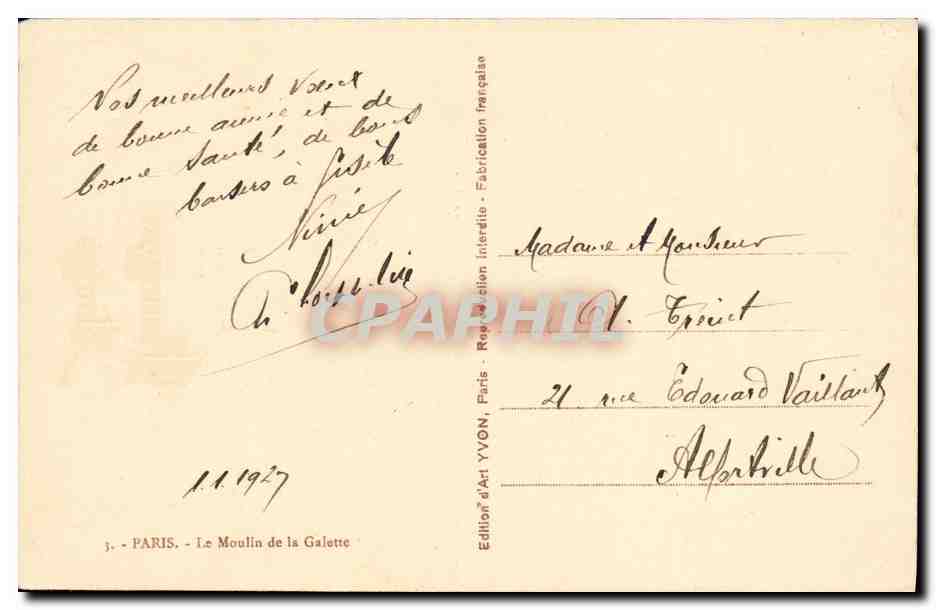 Nos meilleurs vœux
de bonne année et de
bonne santé, de bons
baisers à Gisèle
1.1.1927
3. - PARIS. - Le Moulin de la Galette
Edition d'Art YVON, Paris - Reproduction Interdite - Fabrication française
Madame et Monsieur
21 rue Edouard Vaillant
Alfortville
CPAPHIL